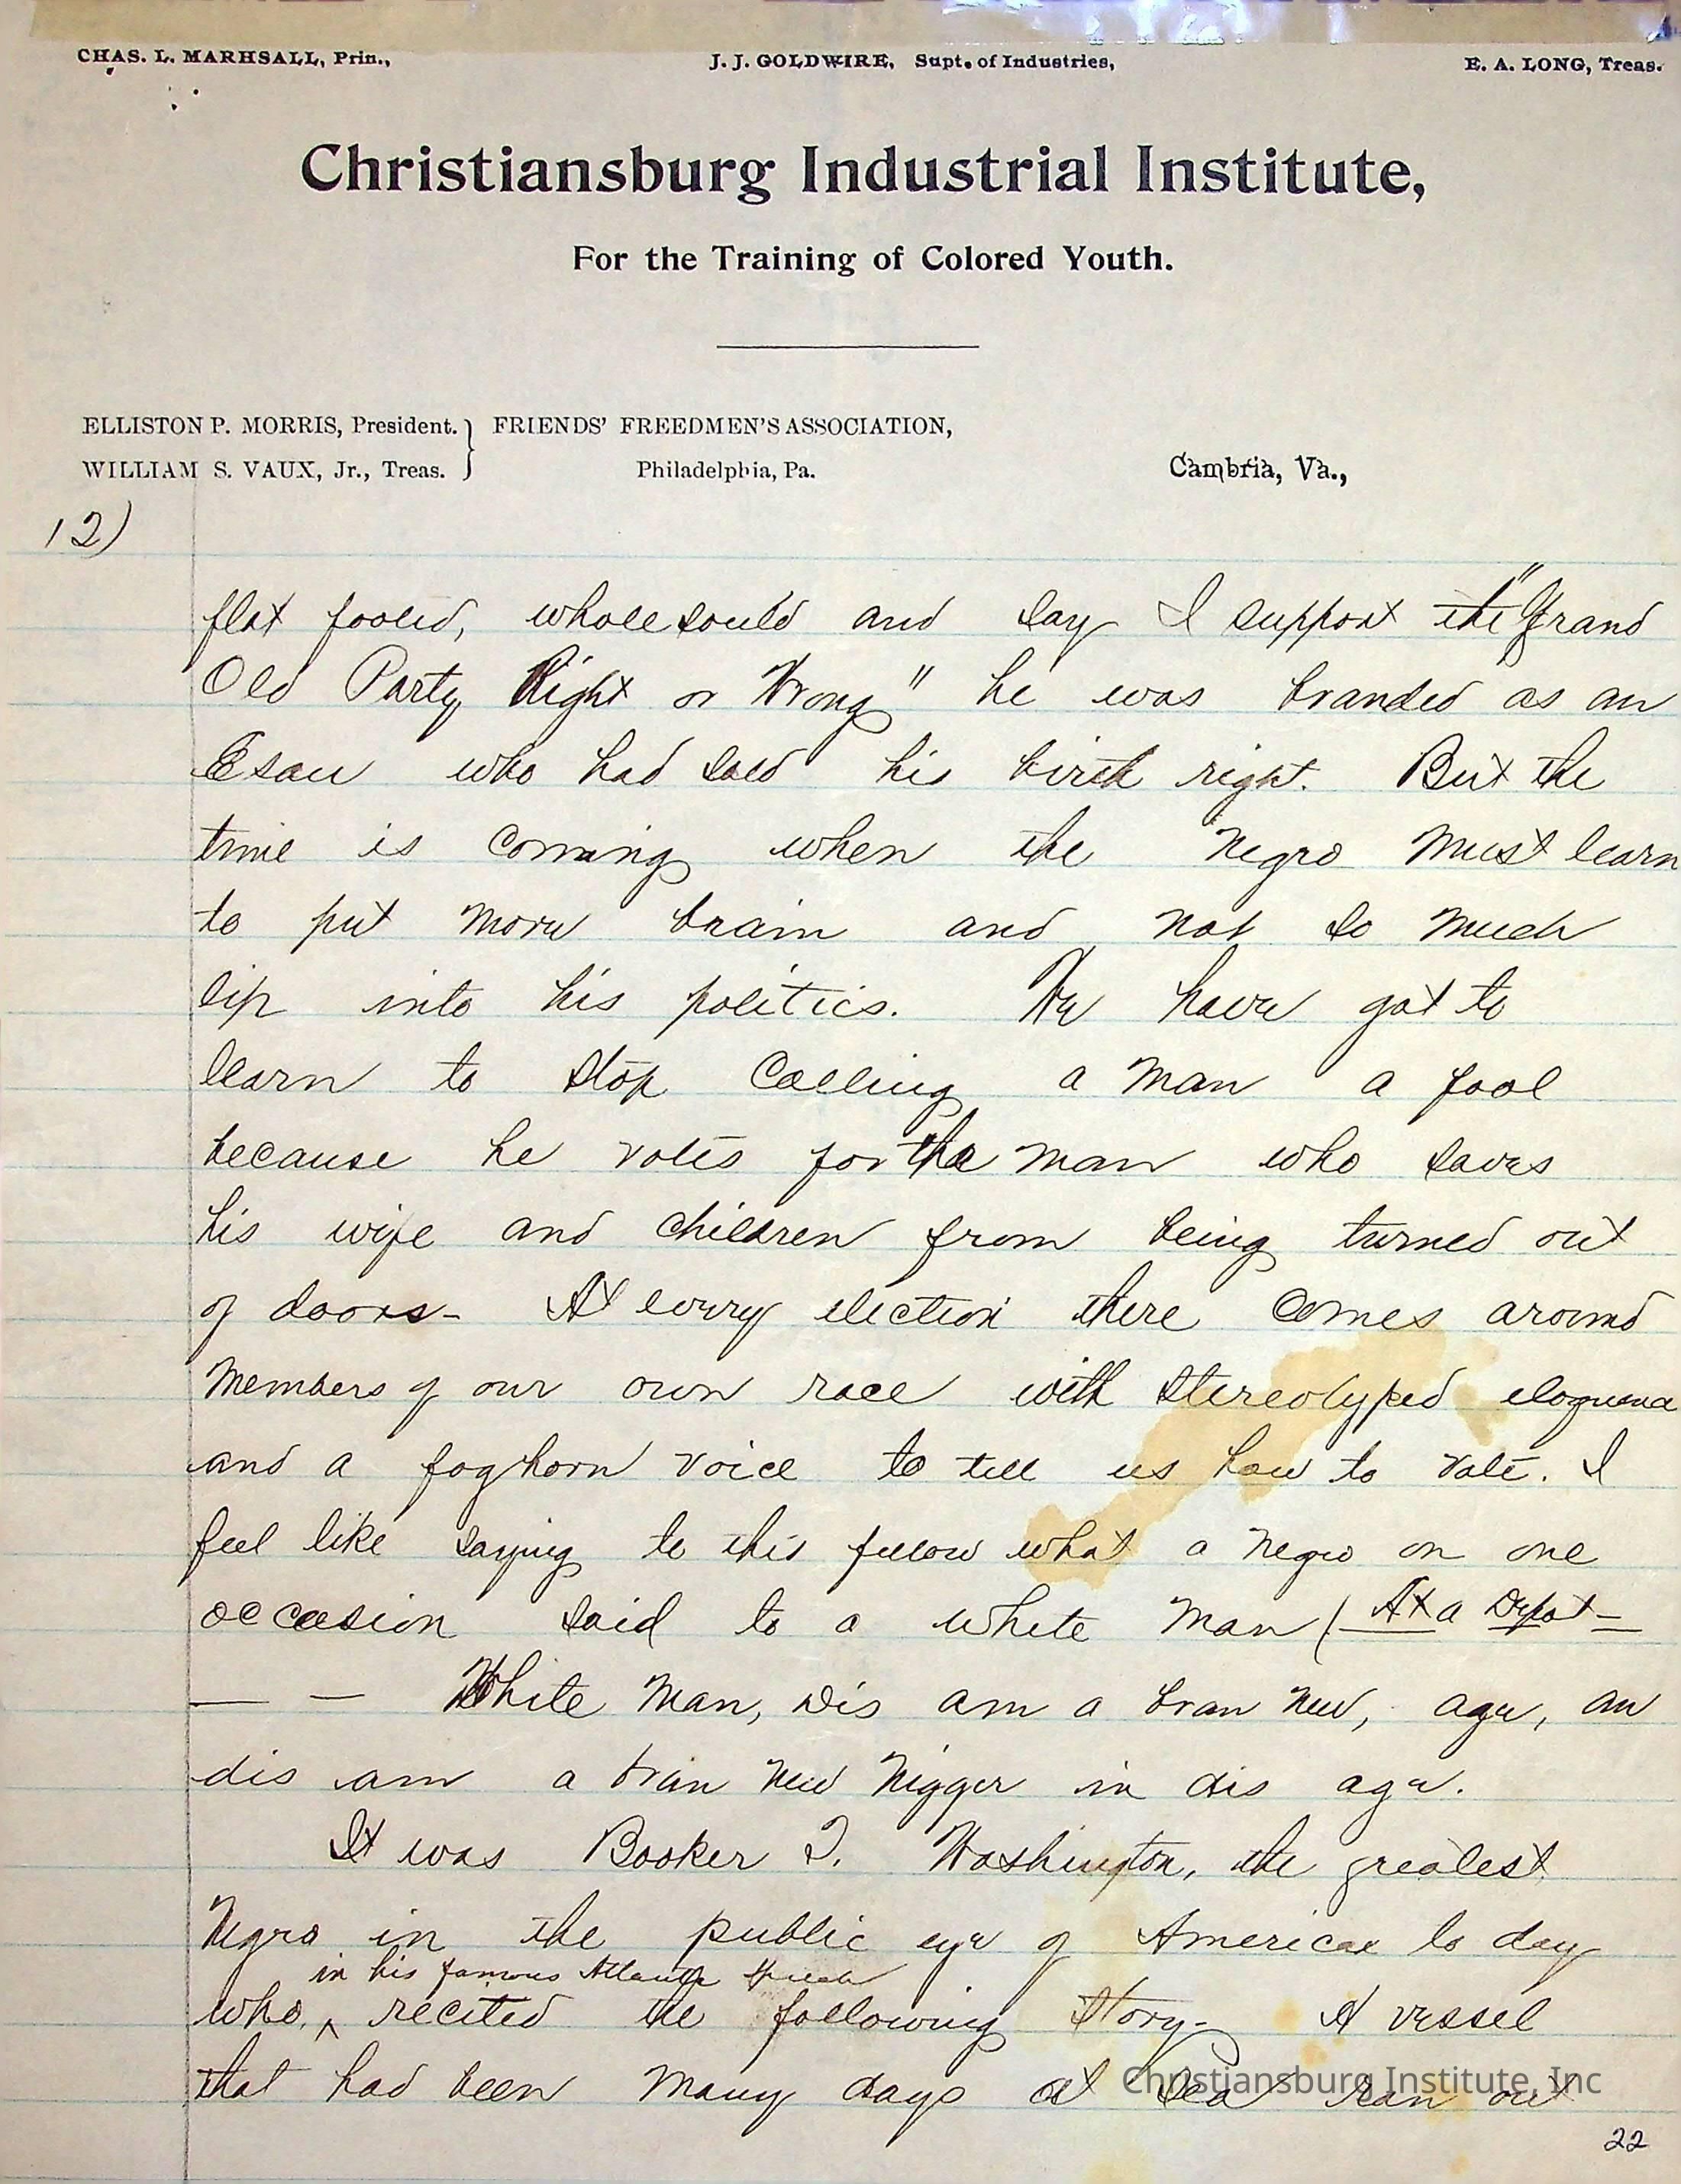 CHAS. L. MARHSALL, Prin., J. J. GOLDWIRE, Supt. of Industries, E. A. LONG, Treas.
Christiansburg Industrial Institute,
For the Training of Colored Youth.
ELLISTON P. MORRIS, President. } FRIENDS' FREEDMEN'S ASSOCIATION,
WILLIAM S. VAUX, Jr., Treas. Philadelphia, Pa. Cambria, Va.,
12)
flat fooled, whole sould and say I support the "Grand
Old Party Right or Wrong" he was branded as an
Esau who had sold his birth right. But the
time is coming when the Negro must learn
to put more brain and not so much
lip into his politics. We have got to
learn to stop calling a man a fool
because he votes for the man who saves
his wife and children from being turned out
of doors- At every election there comes around
members of our own race with stereotyped eloquence
and a foghorn voice to tell us how to vote. I
feel like saying to this fellow what a negro on one
occasion said to a white man (At a Depot -
— — White man, dis am a bran new, age, an
dis am a bran new nigger in dis age.
It was Booker T. Washington, the greatest
Negro in the public eye of American to day
in his famous Atlanta speech
who, ^ recited the following story- A vessel
that had been many days at sea ran out
Christiansburg Institute, Inc
22